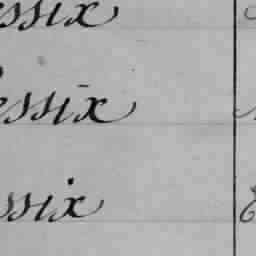 essix
essix
ssix